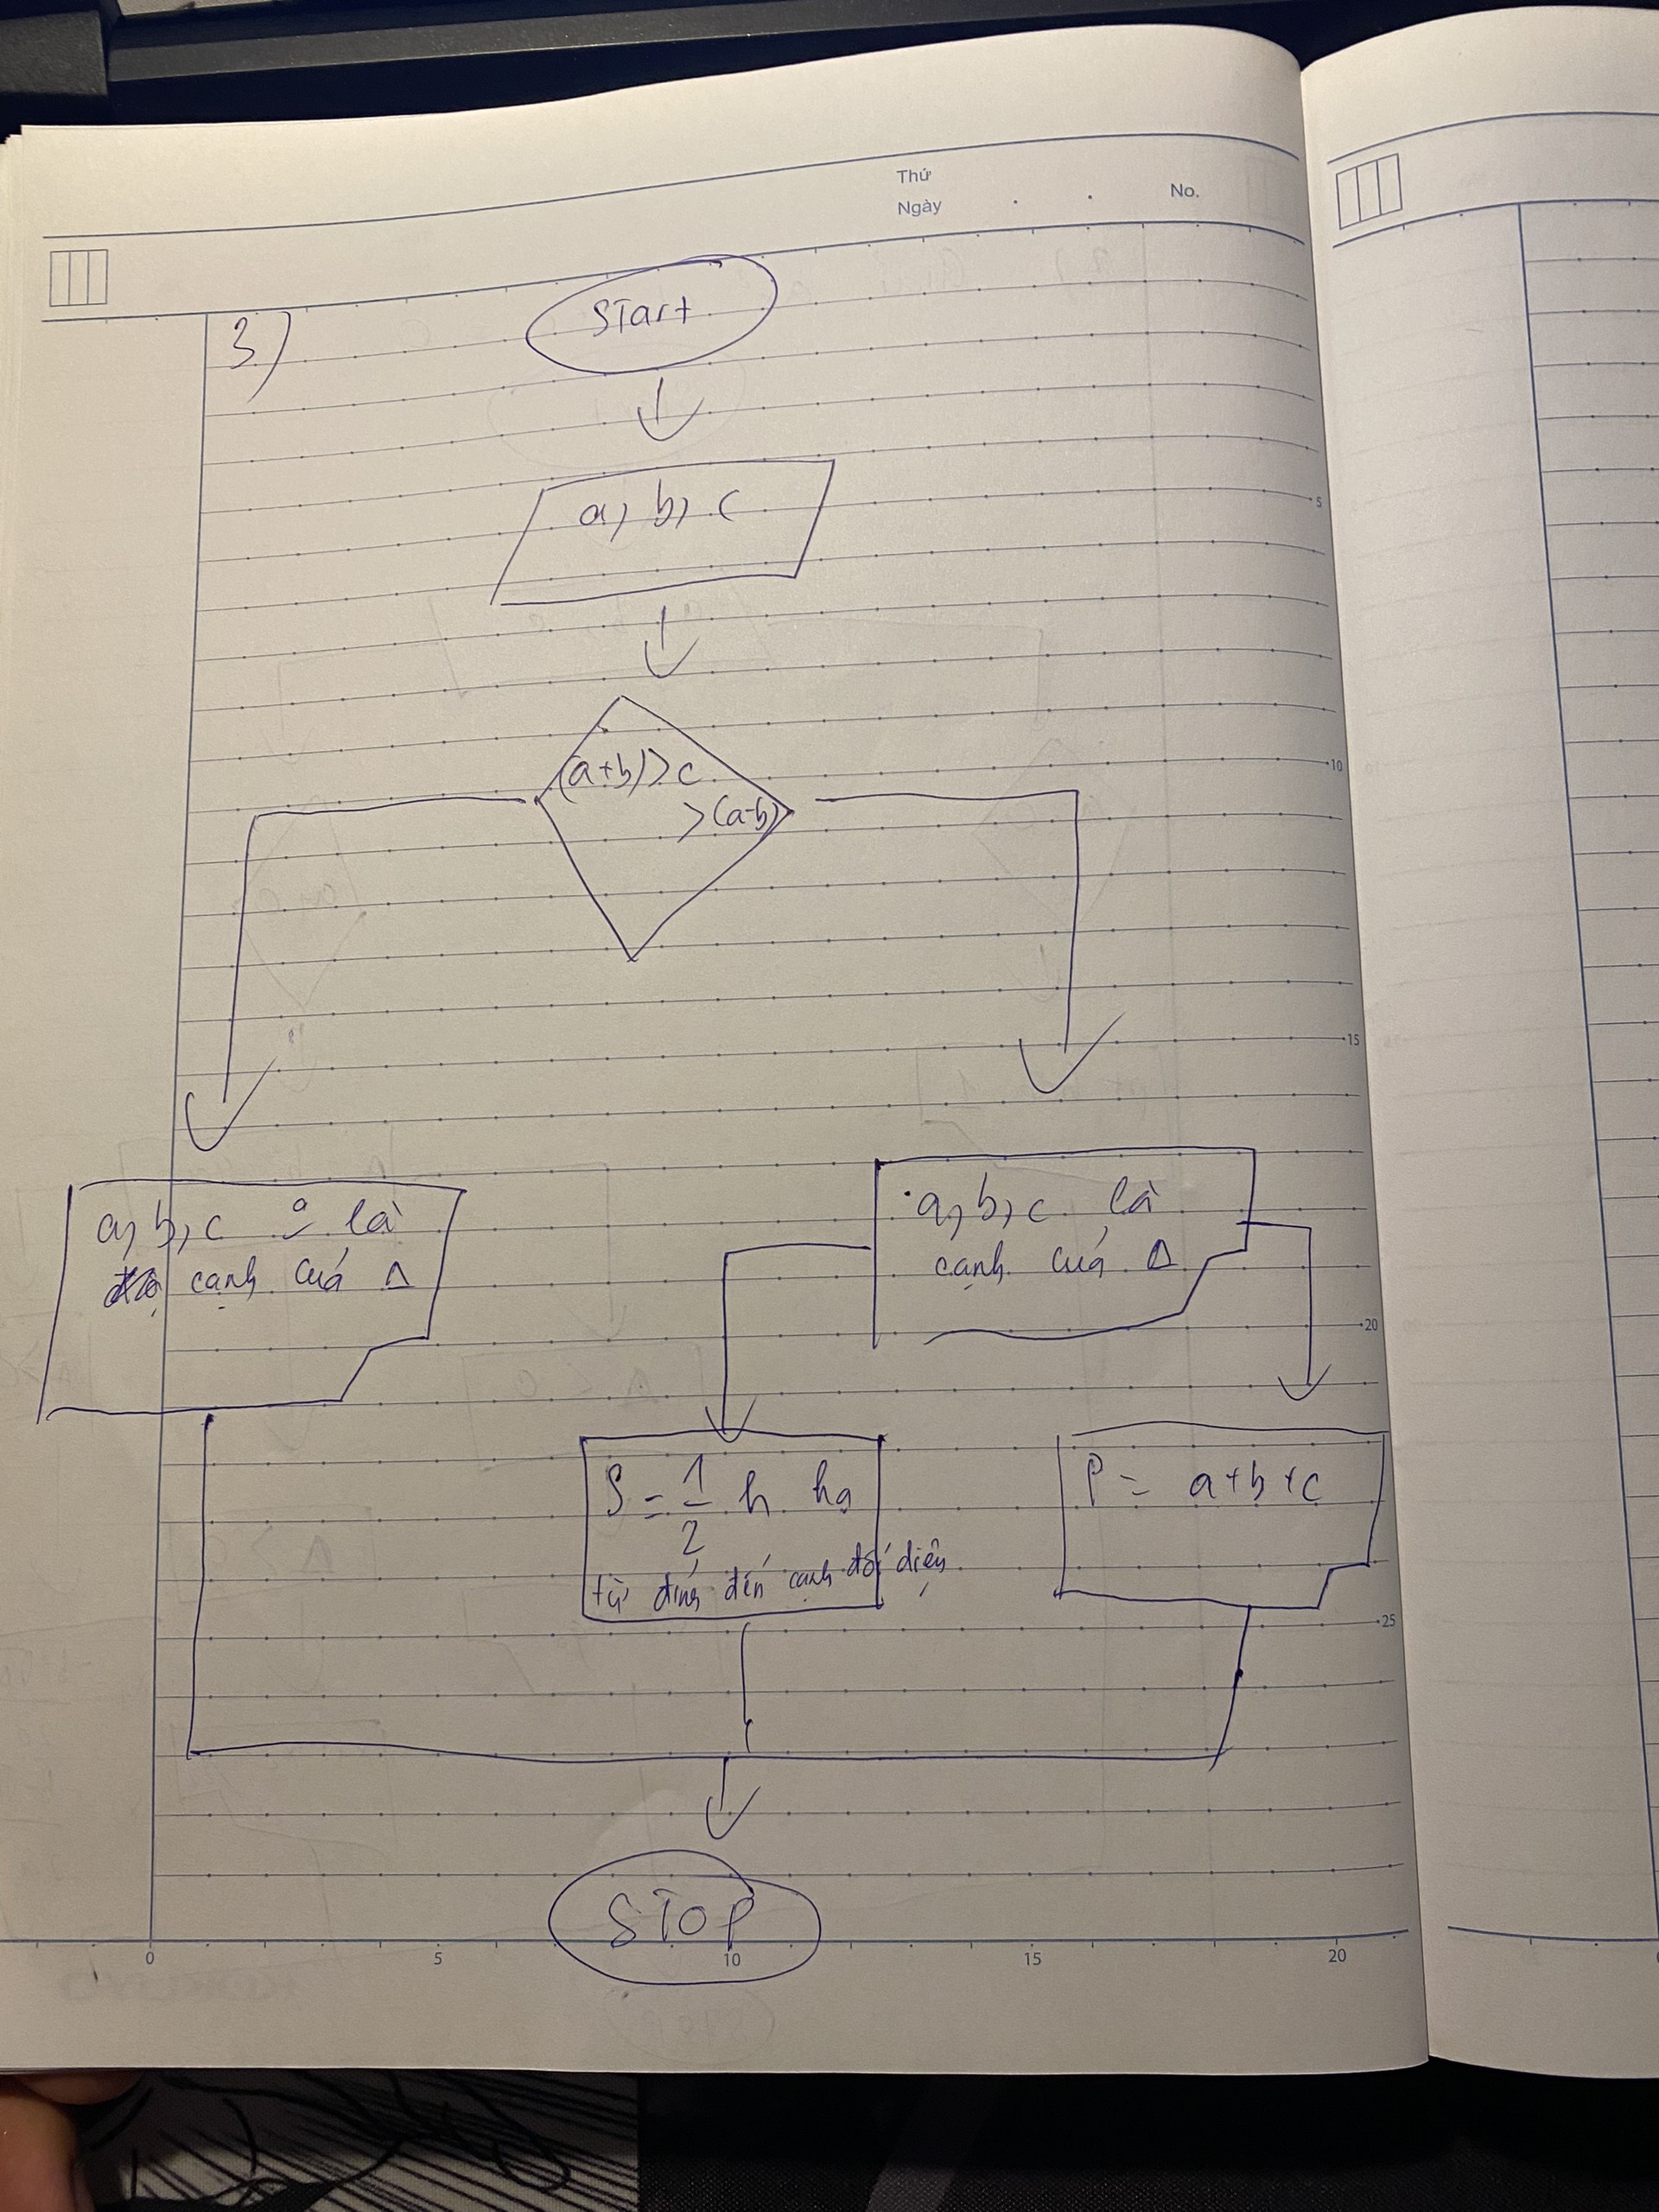 Thứ
Ngày
No.
3)
Start
a, b, c
(a+b) > c
> (a-b)
a, b, c là
cạnh của Δ
a, b, c là
cạnh của Δ
S = 1/2 h ha
từ đỉnh đến cạnh đối diện
P = a+b+c
STOP
5
10
15
20
25
0 5 10 15 20